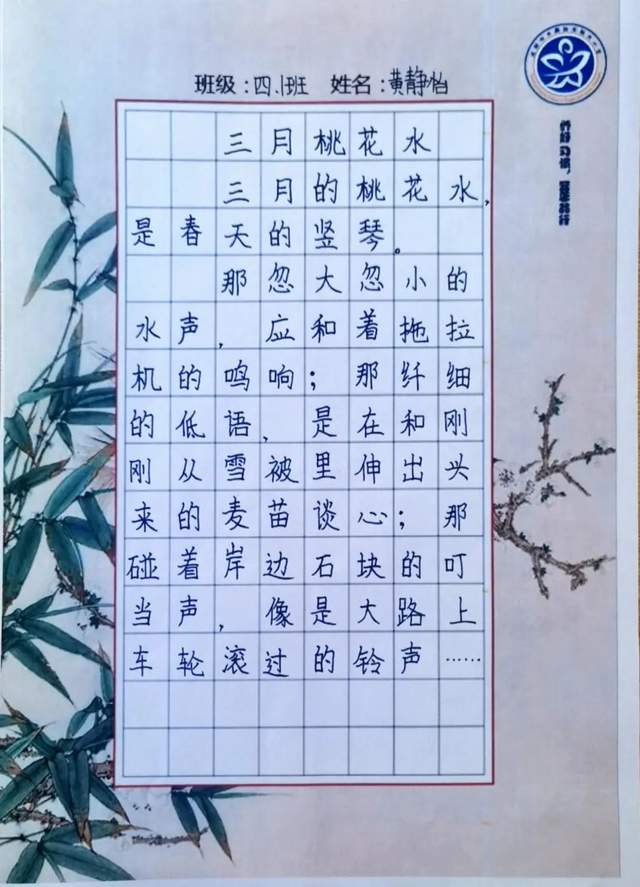 班级：四.1班 姓名：黄静怡
三月桃花水
三月的桃花水，
是春天的竖琴。
那忽大忽小的
水声，应和着拖拉
机的鸣响；那纤细
的低语，是在和刚
刚从雪被里伸出兴
来的麦苗谈心；那
碰着岸边石块的叮
当声，像是大路上
车轮滚过的铃声……